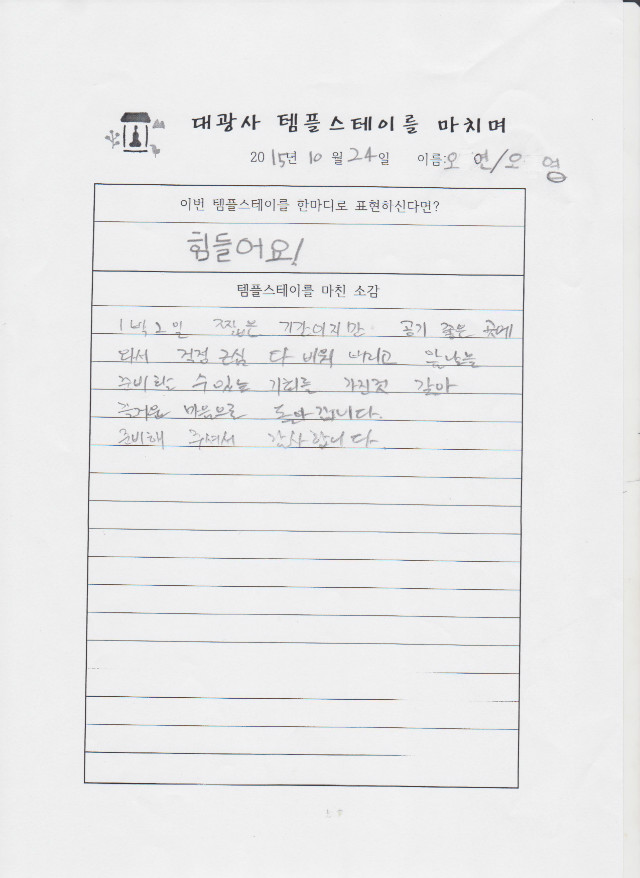 대광사 템플스테이를 마치며
2015년 10월 24일 이름: 오 연/오 영
이번 템플스테이를 한마디로 표현하신다면?
힘들어요!
템플스테이를 마친 소감
1박2일 짧은 기간이지만 공기 좋은 곳에
와서 걱정 근심 다 비워 버리고 앞날을
준비할 수 있는 기회를 가진것 같아
즐거운 마음으로 돌아갑니다.
준비해 주셔서 감사합니다